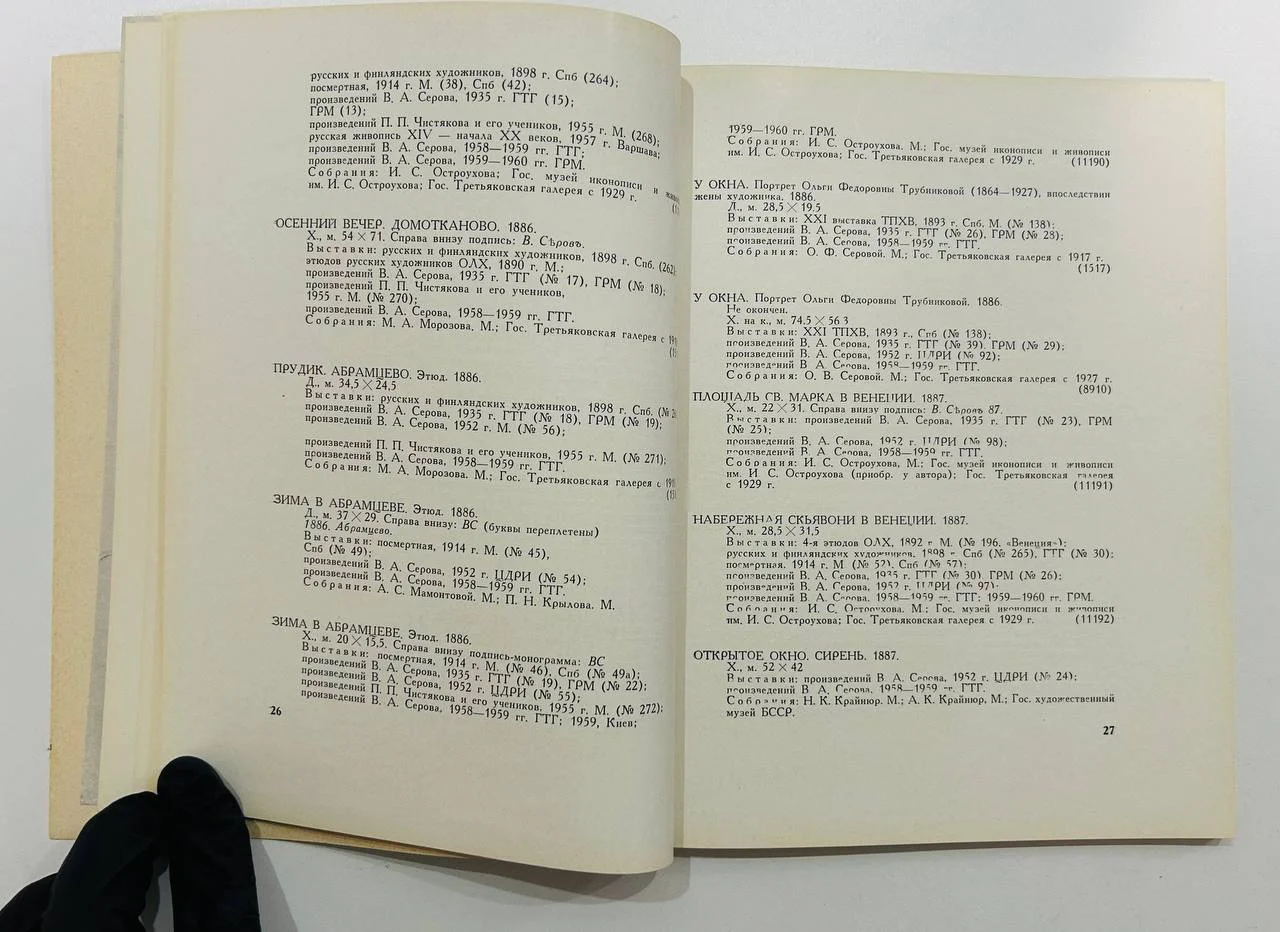 русских и финляндских художников, 1898 г. Спб (264);
посмертная, 1914 г. М. (38), Спб (42);
произведений В. А. Серова, 1935 г. ГТГ (15);
ГРМ (13);
произведений П. П. Чистякова и его учеников, 1955 г. М. (268);
русская живопись XIV — начала XX веков, 1957 г. Варшава;
произведений В. А. Серова, 1958—1959 гг. ГТГ;
произведений В. А. Серова, 1959—1960 гг. ГРМ.
Собрания: И. С. Остроухова; Гос. музей иконописи и
им. И. С. Остроухова; Гос. Третьяковская галерея с 1929 г.
ОСЕННИЙ ВЕЧЕР. ДОМОТКАНОВО. 1886.
Х., м. 54 × 71. Справа внизу подпись: В. Сѣровъ.
Выставки: русских и финляндских художников, 1898 г. Спб. (262)
этюдов русских художников ОЛХ, 1890 г. М.;
произведений В. А. Серова, 1935 г. ГТГ (№ 17), ГРМ (№ 18);
произведений П. П. Чистякова и его учеников,
1955 г. М. (№ 270);
произведений В. А. Серова, 1958—1959 гг. ГТГ.
Собрания: М. А. Морозова. М.; Гос. Третьяковская галерея с
ПРУДИК. АБРАМЦЕВО. Этюд. 1886.
Д., м. 34,5 × 24,5
Выставки: русских и финляндских художников, 1898 г. Спб. (№
произведений В. А. Серова, 1935 г. ГТГ (№ 18), ГРМ (№ 19);
произведений В. А. Серова, 1952 г. М. (№ 56);
произведений П. П. Чистякова и его учеников, 1955 г. М. (№ 271);
произведений В. А. Серова, 1958—1959 гг. ГТГ.
Собрания: М. А. Морозова. М.; Гос. Третьяковская галерея с
ЗИМА В АБРАМЦЕВЕ. Этюд. 1886.
Д., м. 37 × 29. Справа внизу: ВС (буквы переплетены)
1886. Абрамцево.
Выставки: посмертная, 1914 г. М. (№ 45),
Спб (№ 49);
произведений В. А. Серова, 1952 г. ЦДРИ (№ 54);
произведений В. А. Серова, 1958—1959 гг. ГТГ.
Собрания: А. С. Мамонтовой. М.; П. Н. Крылова. М.
ЗИМА В АБРАМЦЕВЕ. Этюд. 1886.
Х., м. 20 × 15,5. Справа внизу подпись-монограмма: ВС
Выставки: посмертная, 1914 г. М. (№ 46), Спб (№ 49а);
произведений В. А. Серова, 1935 г. ГТГ (№ 19), ГРМ (№ 22);
произведений В. А. Серова, 1952 г. ЦДРИ (№ 55);
произведений П. П. Чистякова и его учеников, 1955 г. М. (№ 272);
произведений В. А. Серова, 1958—1959 гг. ГТГ; 1959, Киев;
26
1959—1960 гг. ГРМ.
Собрания: И. С. Остроухова. М.; Гос. музей иконописи и живописи
им. И. С. Остроухова; Гос. Третьяковская галерея с 1929 г. (11190)
У ОКНА. Портрет Ольги Федоровны Трубниковой (1864—1927), впоследствии
жены художника. 1886.
Д., м. 28,5 × 19.5
Выставки: XXI выставка ТПХВ, 1893 г. Спб, М. (№ 138);
произведений В. А. Серова, 1935 г. ГТГ (№ 26), ГРМ (№ 28);
произведений В. А. Серова, 1958—1959 гг. ГТГ.
Собрания: О. Ф. Серовой. М.; Гос. Третьяковская галерея с 1917 г.
(1517)
У ОКНА. Портрет Ольги Федоровны Трубниковой. 1886.
Не окончен.
Х. на к., м. 74,5 × 56 3
Выставки: XXI ТПХВ, 1893 г., Спб (№ 138);
произведений В. А. Серова, 1935 г. ГТГ (№ 39). ГРМ (№ 29);
произведений В. А. Серова, 1952 г. ЦДРИ (№ 92);
произведений В А. Серова, 1958—1959 гг. ГТГ.
Собрания: О. В. Серовой. М.; Гос. Третьяковская галерея с 1927 г.
(8910)
ПЛОЩАДЬ СВ. МАРКА В ВЕНЕЦИИ. 1887.
Х., м. 22 × 31. Справа внизу подпись: В. Сѣровъ 87.
Выставки: произведений В. А. Серова, 1935 г. ГТГ (№ 23), ГРМ
(№ 25);
произведений В. А. Серова, 1952 г. ЦДРИ (№ 98);
произведений В. А. Серова, 1958—1959 гг. ГТГ.
Собрания: И. С. Остроухова, М.; Гос. музей иконописи и живописи
им. И. С. Остроухова (приобр. у автора); Гос. Третьяковская галерея
с 1929 г. (11191)
НАБЕРЕЖНАЯ СКЬЯВОНИ В ВЕНЕЦИИ. 1887.
Х., м. 28,5 × 31,5
Выставки: 4-я этюдов ОЛХ, 1892 г. М. (№ 196, «Венеция»);
русских и финляндских художников, 1898 г. Спб (№ 265), ГТГ (№ 30);
посмертная. 1914 г. М (№ 52), Спб (№ 57);
произведений В. А. Серова, 1935 г. ГТГ (№ 30), ГРМ (№ 26);
произведений В. А. Серова, 1952 г. ЦДРИ (№ 97);
произведений В. А. Серова, 1958—1959 гг. ГТГ; 1959—1960 гг. ГРМ.
Собрания: И. С. Остроухова. М.; Гос. музей иконописи и живописи
им. И. С. Остроухова; Гос. Третьяковская галерея с 1929 г. (11192)
ОТКРЫТОЕ ОКНО. СИРЕНЬ. 1887.
Х., м. 52 × 42
Выставки: произведений В. А. Серова, 1952 г. ЦДРИ (№ 24);
произведений В А. Серова, 1958—1959 гг. ГТГ.
Собрания: Н. К. Крайнюр. М.; А. К. Крайнюр. М.; Гос. художественный
музей БССР.
27